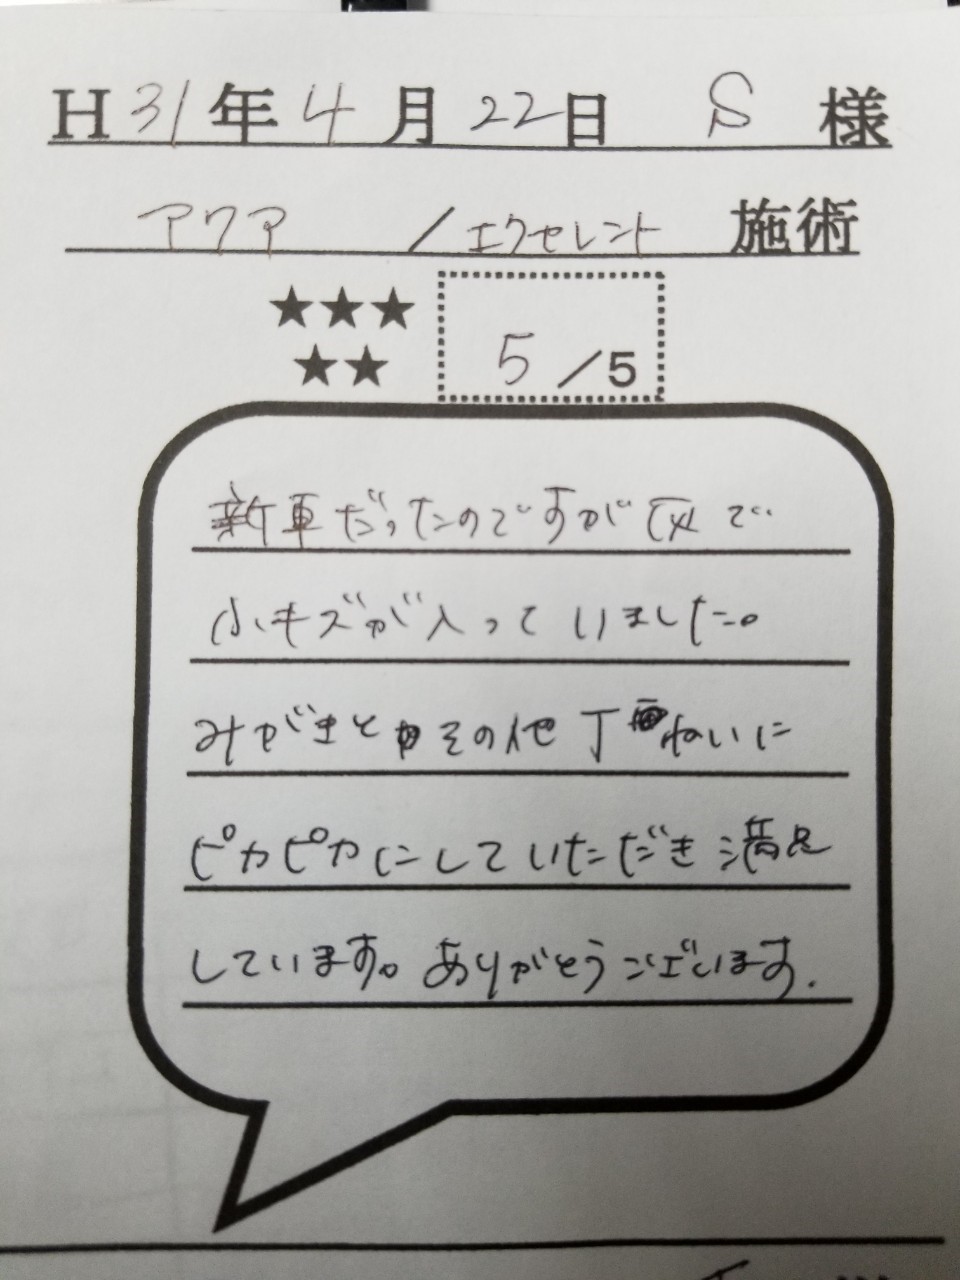 H31年4月22日 S 様
アクア /エクセレント 施術
★★★
★★
5/5
新車だったのですが
小キズが入っていました。
みがきとその他丁ねいに
ピカピカにしていただき満足
しています。ありがとうございます.